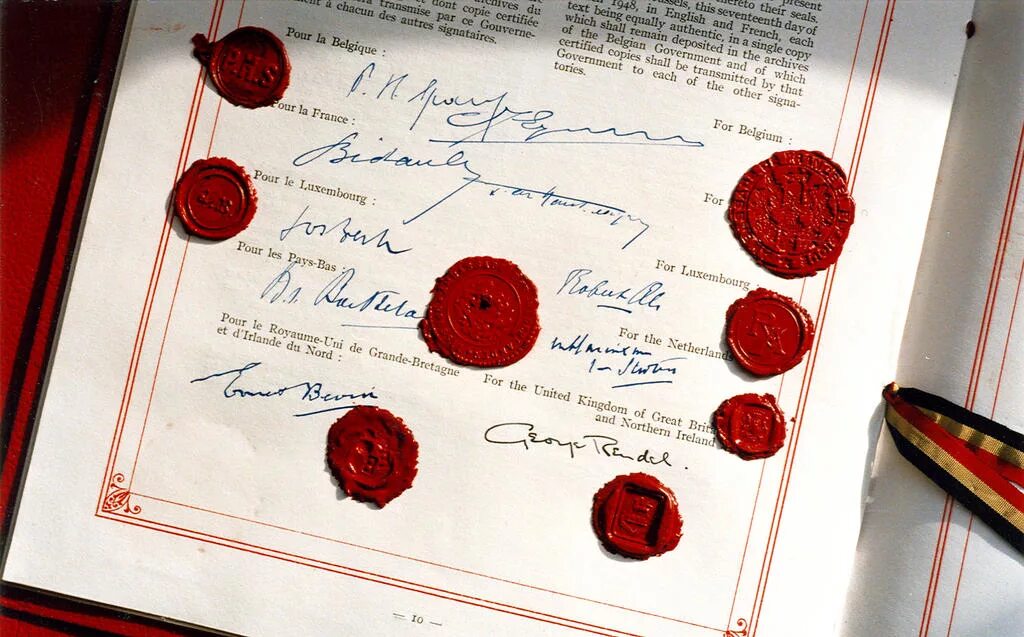 archives du
et dont copie certifiée
sera transmise par ce Gouverne-
ment à chacun des autres signataires.
present
thereto their seals.
this seventeenth day of
1948, in English and French, each
text being equally authentic, in a single copy
which shall remain deposited in the archives
of the Belgian Government and of which
certified copies shall be transmitted by that
Government to each of the other signa-
tories.
Pour la Belgique :
For Belgium :
P. H. Spaak
Pour la France :
For
Bidault
Pour le Luxembourg :
For Luxembourg :
Jos Bech
Robert Als
Pour les Pays-Bas
For the Netherlands
Pour le Royaume-Uni de Grande-Bretagne
et d'Irlande du Nord :
For the United Kingdom of Great Brit
and Northern Ireland
Ernest Bevin
George Rendel.
P.H.S
= 10 —